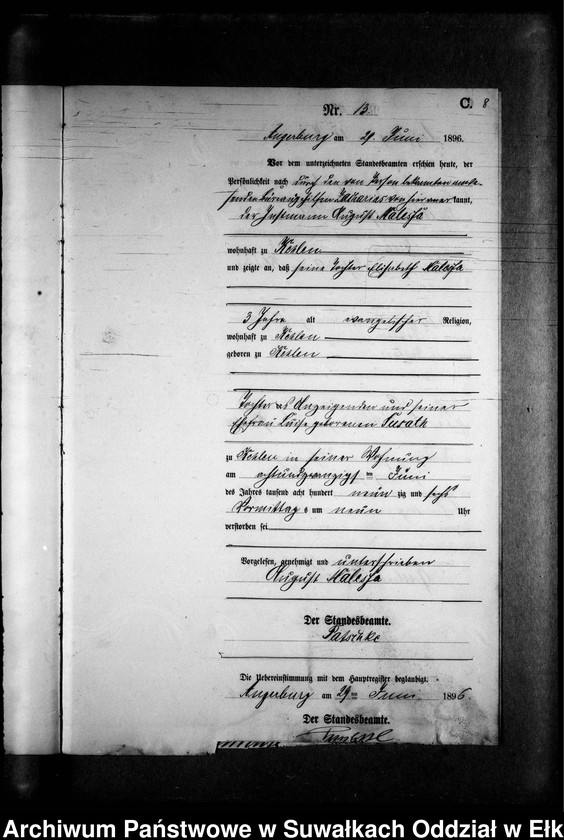 C. 8
Nr. 13.
Angerburg am 29 Juni 1896.
Vor dem unterzeichneten Standesbeamten erschien heute, der
Persönlichkeit nach durch den von Person bekannten anwe-
senden Zacharias von hier anerkannt,
der Instmann August Malessa
wohnhaft zu Kehlen
und zeigte an, daß seine Tochter Elisabeth Malessa
3 Jahre alt evangelischer Religion,
wohnhaft zu Kehlen
geboren zu Kehlen
Tochter des Anzeigenden und seiner
Ehefrau Luise geborenen Surath
zu Kehlen in seiner Wohnung
am achtundzwanzigsten Juni
des Jahres tausend acht hundert neunzig und sechs
Vormittags um neun Uhr
verstorben sei
Vorgelesen, genehmigt und unterschrieben
August Malessa
Der Standesbeamte.
Patschke
Die Uebereinstimmung mit dem Hauptregister beglaubigt.
Angerburg am 29ten Juni 1896.
Der Standesbeamte.
Archiwum Państwowe w Suwałkach Oddział w Ełk